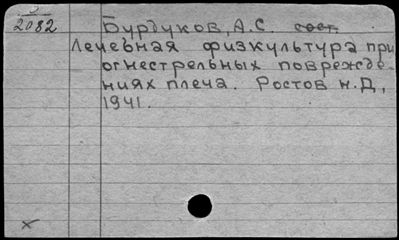 2082
Бурдуков, А.С. сост.
Лечебная физкультура при
огнестрельных поврежде-
ниях плеча. Ростов н.Д,
1941.
х